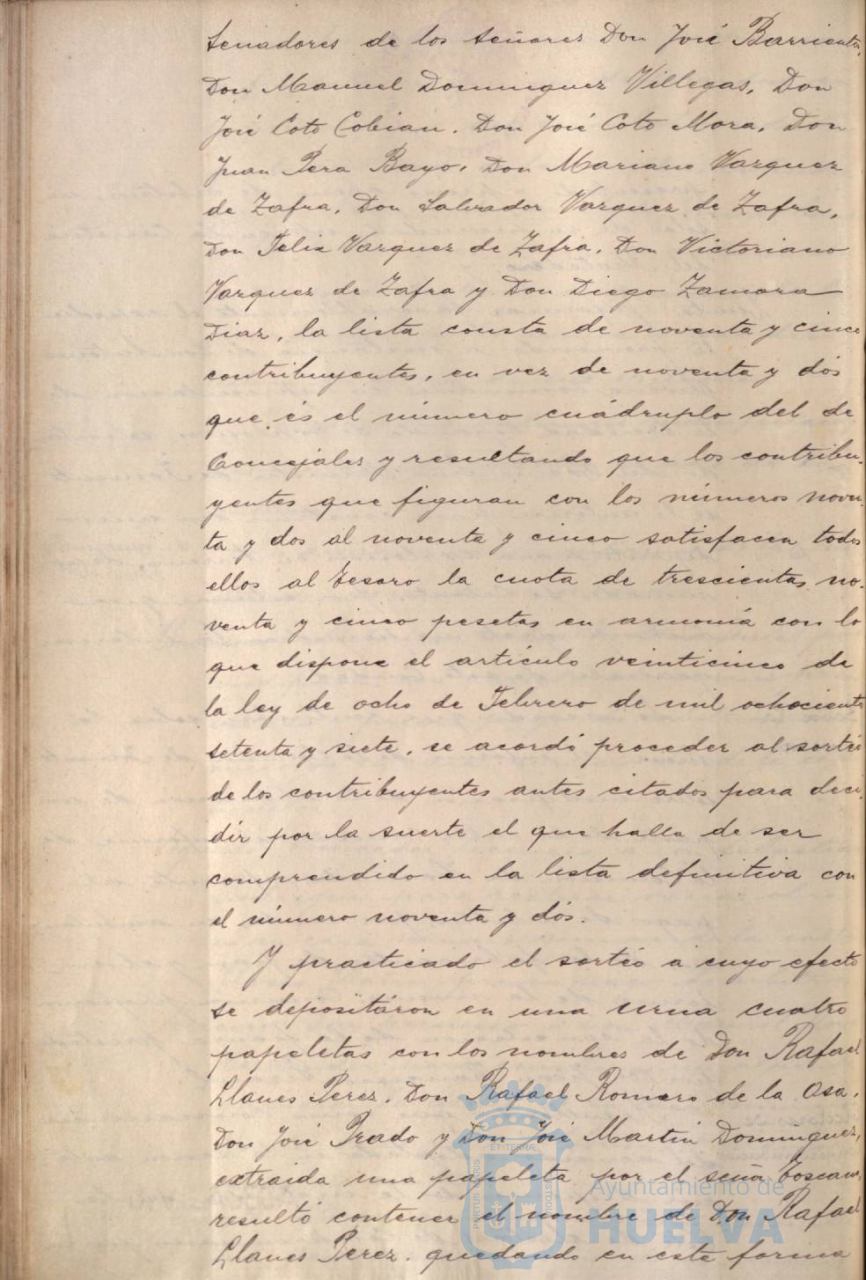 Senadores de los señores Don José Barrientos,
Don Manuel Dominguez Villegas, Don
José Coto Cobian, Don José Coto Mora, Don
Juan Pera Bayo, Don Mariano Vazquez
de Zafra, Don Salvador Vazquez de Zafra,
Don Felix Vazquez de Zafra, Don Victoriano
Vazquez de Zafra y Don Diego Zamora
Diaz, la lista consta de noventa y cinco
contribuyentes, en vez de noventa y dós
que és el número cuádruplo del de
Concejales y resultando que los contribu-
yentes que figuran con los números noven-
ta y dos al noventa y cinco satisfacen todos
ellos al Tesoro la cuota de trescientas no-
venta y cinco pesetas en armonía con lo
que dispone el artículo veinticinco de
la ley de ocho de Febrero de mil ochocientos
setenta y siete, se acordó proceder al sorteo
de los contribuyentes antes citados para deci-
dir por la suerte el que halla de ser
comprendido en la lista definitiva con
el número noventa y dós.
Y practicado el sorteo á cuyo efecto
se depositáron en una urna cuatro
papeletas con los nombres de Don Rafael
Llanes Perez, Don Rafael Romero de la Osa,
Don José Prado y Don José Martin Dominguez,
extraida una papeleta por el señor Toscano,
resultó contener el nombre de Don Rafael
Llanes Perez, quedando en esta forma
Ayuntamiento de
HUELVA